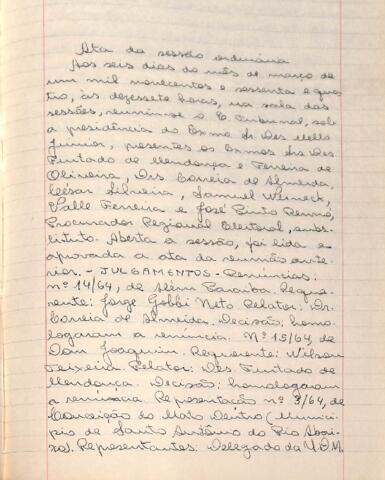 Ata da sessão ordinária
Aos seis dias do mês de março de
um mil novecentos e sessenta e qua
tro, às dezessete horas, na sala das
sessões, reuniu-se o E. Tribunal, sob
a presidência do Exmo Sr. Des. Mello
Junior, presentes os Exmos Srs. Des.
Furtado de Mendonça e Ferreira de
Oliveira, Drs. Correia de Almeida,
César Silveira, Samuel Werneck,
Valle Ferreira e José Pinto Renno,
Procurador Regional Eleitoral, subs-
tituto. Aberta a sessão, foi lida e
aprovada a ata da reunião ante-
rior. - JULGAMENTOS - Renúncias:
nº 14/64, de Além Paraíba. Reque-
rente: Jorge Gobbi Neto. Relator: Dr.
Correia de Almeida. Decisão: homo-
logaram a renúncia. Nº 15/64, de
Dom Joaquim. Requerente: Wilson
Teixeira. Relator: Des. Furtado de
Mendonça. Decisão: homologaram
a renúncia. Representação nº 3/64, de
Conceição do Mato Dentro (Municí-
pio de Santo Antônio do Rio Abai-
xo). Representantes: Delegado da U.D.N.